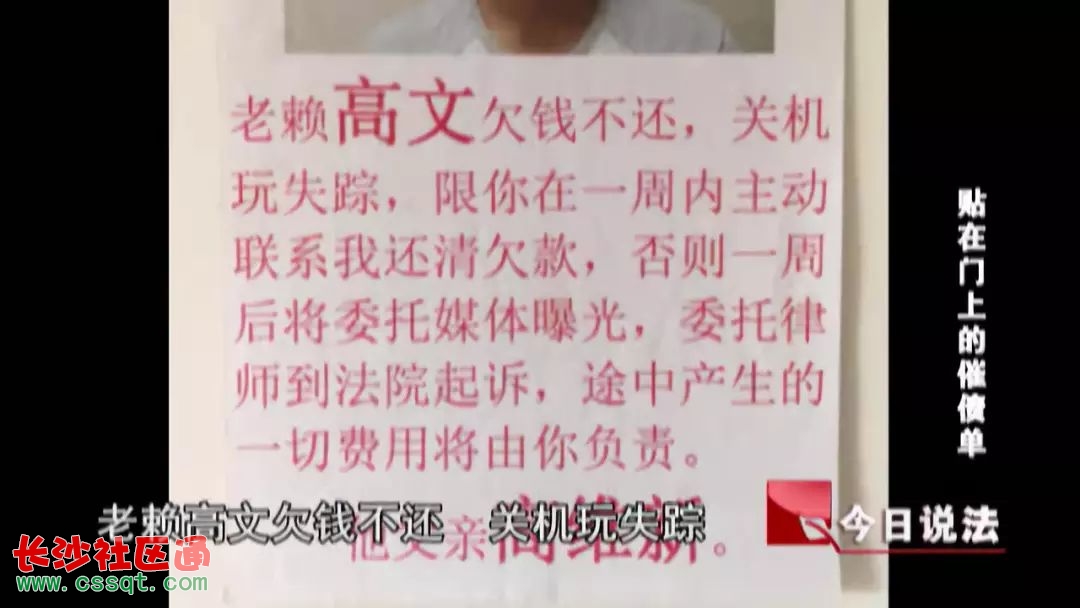 老赖高文欠钱不还，关机
玩失踪，限你在一周内主动
联系我还清欠款，否则一周
后将委托媒体曝光，委托律
师到法院起诉，途中产生的
一切费用将由你负责。
他父亲高维新。
老赖高文欠钱不还 关机玩失踪
贴在门上的催债单
今日说法
长沙社区通
www.cssqt.com